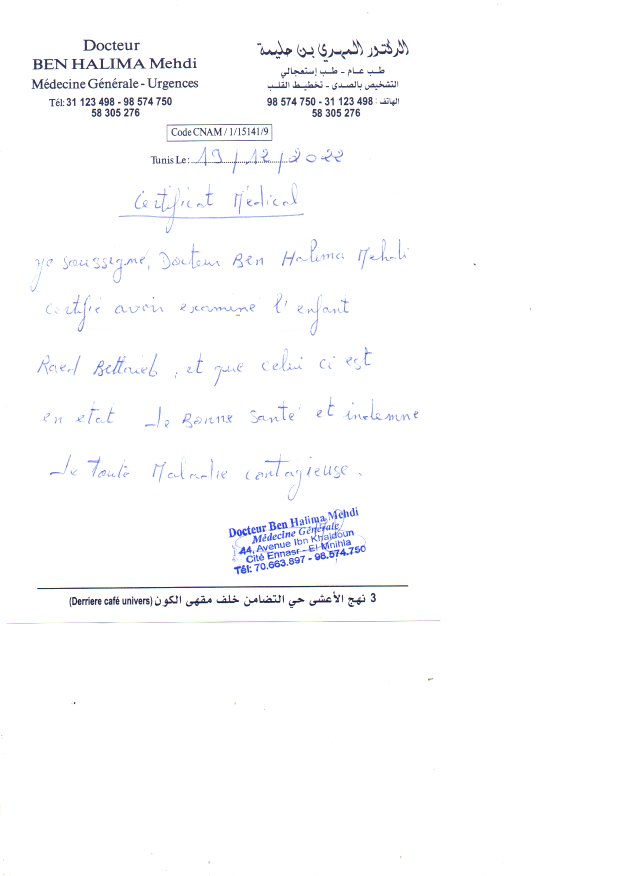 Docteur
BEN HALIMA Mehdi
Médecine Générale - Urgences
Tél: 31 123 498 - 98 574 750
58 305 276
الدكتور المهدي بن حليمة
طب عام - طب إستعجالي
التشخيص بالصدى - تخطيط القلب
الهاتف : 31 123 498 - 98 574 750
58 305 276
Code CNAM / 1/15141/9
Tunis Le : 19/12/2022
Certificat Médical
je soussigné, Docteur Ben Halima Mehdi
certifie avoir examiné l'enfant
Raed Bettaieb, et que celui ci est
en etat de Bonne santé et indemne
de toute Maladie contagieuse.
Docteur Ben Halima Mehdi
Médecine Générale
44, Avenue Ibn Khaldoun
Cité Ennasr - El Mnihla
Tél: 70.663.897 - 98.574.750
3 نهج الأعشى حي التضامن خلف مقهى الكون (Derriere café univers)